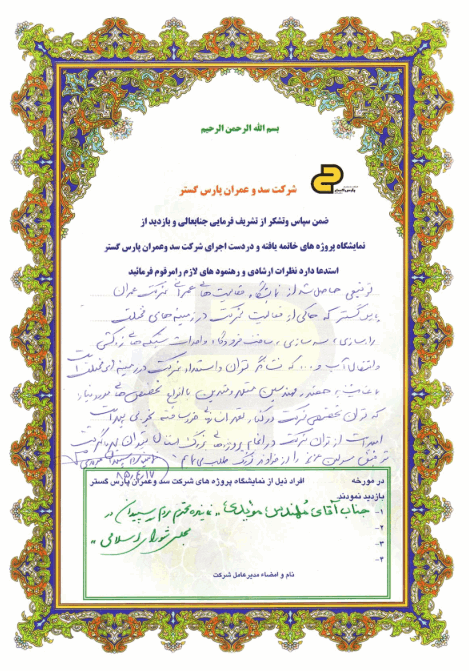 بسم الله الرحمن الرحیم
شرکت سد و عمران پارس گستر
ضمن سپاس وتشکر از تشریف فرمایی جنابعالی و بازدید از
نمایشگاه پروژه های خاتمه یافته و دردست اجرای شرکت سد وعمران پارس گستر
استدعا دارد نظرات ارشادی و رهنمود های لازم رامرقوم فرمائید
توفیقی حاصل شد از نمایشگاه فعالیت های عمرانی شرکت عمران
پارس گستر که حاکی از فعالیت شرکت در زمینه های مختلف
راهسازی، سد سازی، ساخت فرودگاه و احداث شبکه های زهکشی
وانتقال آب و ... که نشانگر توان واستعداد شرکت در زمینه های مختلف
با عنایت به حضور مهندسین
که توان تخصصی شرکت در کنار
امید است از توان شرکت در انجام پروژه های بزرگ استان
توفیق را از خداوند بزرگ
۸۵،۶،۱۷
در مورخه افراد ذیل از نمایشگاه پروژه های شرکت سد وعمران پارس گستر
بازدید نمودند
۱- جناب آقای مهندس مویدی، نماینده محترم مردم سپیدان در
۲- مجلس شورای اسلامی
۳-
۴-
نام و امضاء مدیرعامل شرکت